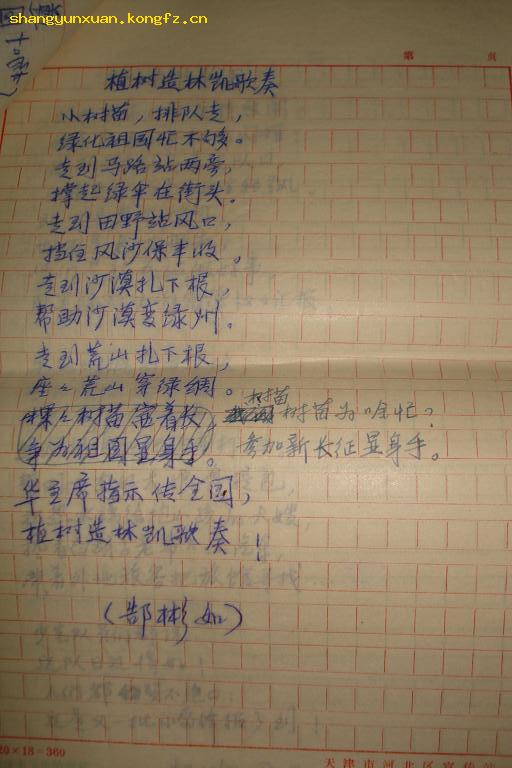 shangyunxuan.kongfz.cn
第 页
植树造林凯歌奏
小树苗，排队走，
绿化祖国忙不够。
走到马路站两旁，
撑起绿伞在街头。
走到田野站风口，
挡住风沙保丰收。
走到沙漠扎下根，
帮助沙漠变绿州。
走到荒山扎下根，
座々荒山穿绿绸。
棵々树苗蛮着长，
争为祖国显身手。
树苗树苗为啥忙？
参加新长征显身手。
华主席指示传全国，
植树造林凯歌奏！
（郜彬如）
20×18=360
天津市河北区宣传站